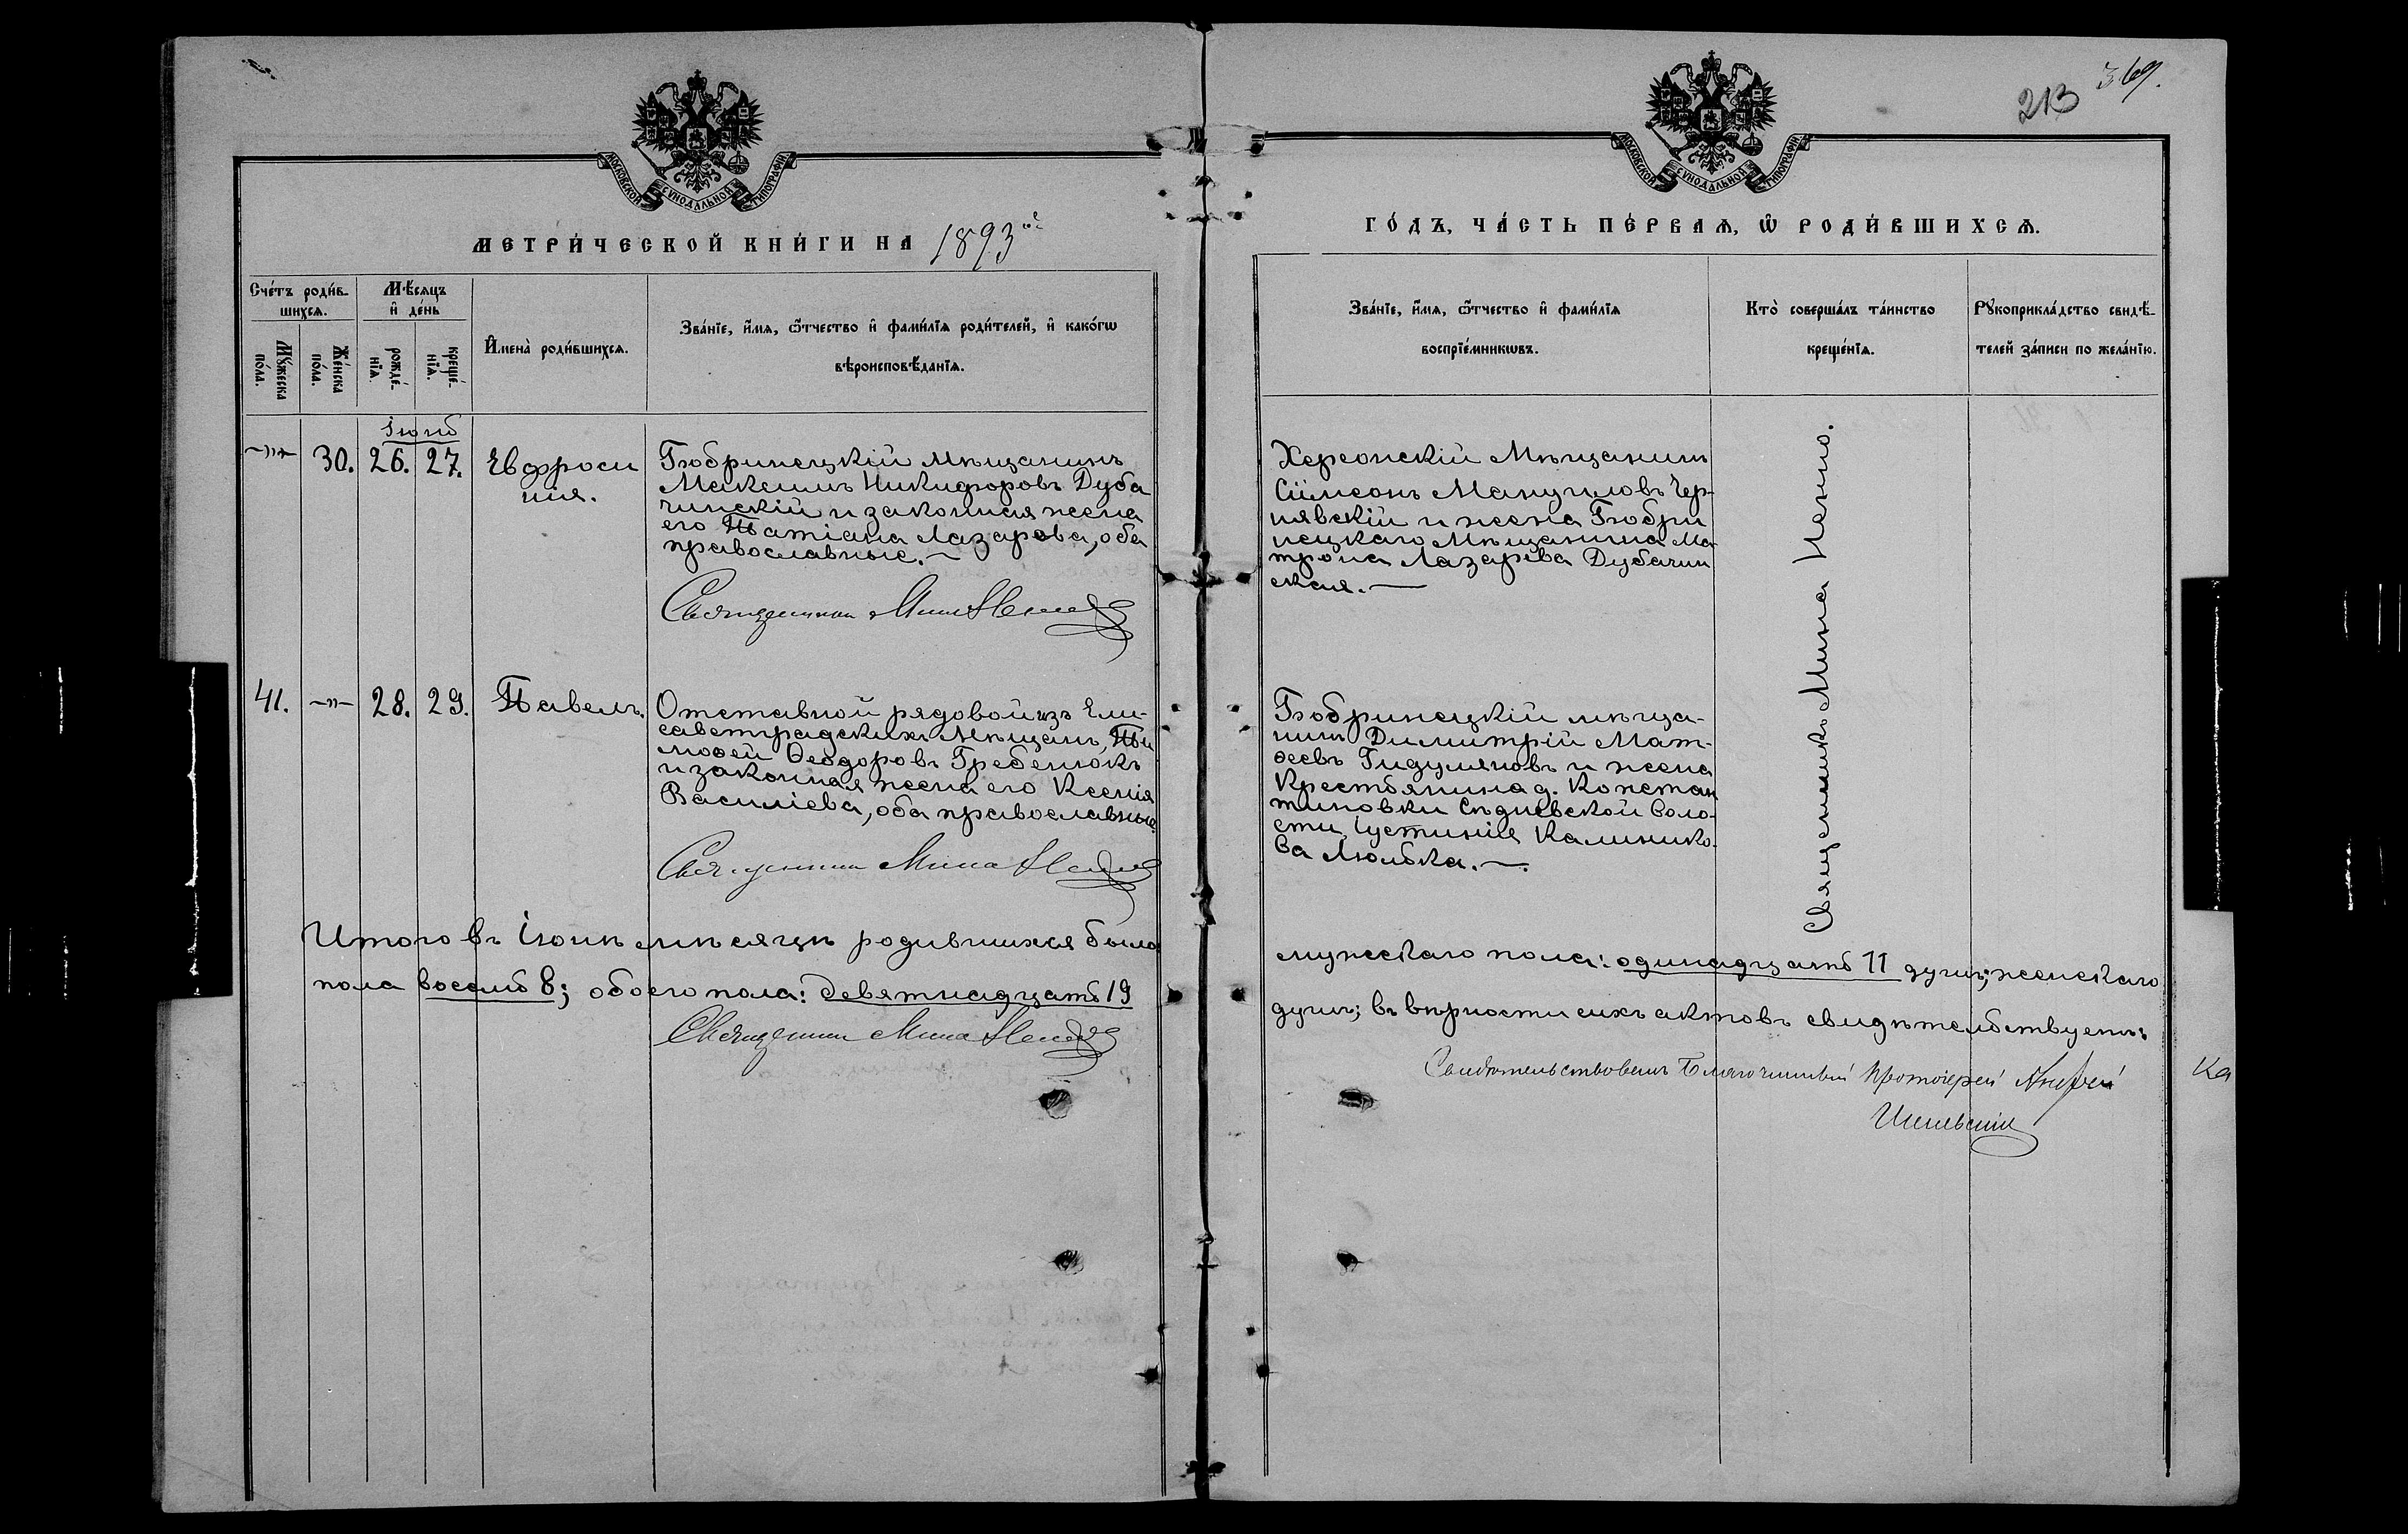 213 369.
МОСКОВСКОЙ СѴНОДАЛЬНОЙ ТИПОГРАФІИ
МОСКОВСКОЙ СѴНОДАЛЬНОЙ ТИПОГРАФІИ
МЕТРИ́ЧЕСКОЙ КНИ́ГИ НА 1893й
ГО́ДЪ, ЧА́СТЬ ПЕ́РВАѦ, Ѡ҆ РОДИ́ВШИХСѦ.
Сче́тъ роди́в-
шихсѧ.
Мꙋ́жеска
по́ла.
Же́нска
по́ла.
Мѣ́сяцъ
и҆ де́нь
рожде́-
нїѧ.
креще́-
нїѧ.
И҆мена̀ роди́вшихсѧ.
Зва́нїе, и҆́мѧ, ѻ҆́тчество и҆ фами́лїѧ роди́телей, и҆ како́гѡ
вѣроисповѣ́данїѧ.
Зва́нїе, и҆́мѧ, ѻ҆́тчество и҆ фами́лїѧ
воспрїе́мникѡвъ.
Кто̀ соверша́лъ та́инство
креще́нїѧ.
Рꙋкоприкла́дство свидѣ́-
телей за́писи по жела́нїю.
Іюнь
-"- 30. 26. 27. Евфроси
нія.
Бобринецкій Мѣщанинъ
Максимъ Никифоровъ Дуба
чинскій и законная жена
его Татіана Лазарева, оба
православные.
Священникъ Мина
Херсонскій Мѣщанинъ
Сѵмеонъ Мануиловъ Чер-
нявскій и жена Бобри
нецкаго Мѣщанина Ма-
трона Лазарева Дубачин
ская.
Священникъ Мина Ненно.
41. -"- 28. 29. Павелъ.
Отставной рядовой изъ Ели-
саветградскихъ Мѣщанъ, Ти
моѳей Ѳеодоровъ Гребенюкъ
и законная жена его Ксенія
Василіева, оба православные.
Священникъ Мина
Бобринецкій мѣща-
нинъ Димитрій Мат-
ѳеевъ Гидуляновъ и жена
Крестьянина д. Констан
тиновки Сѣдневской Воло-
сти Іустинія Калинико-
ва Люлька.
Итого въ Іюнѣ мѣсяцѣ родившихся было
мужескаго пола: одинадцать 11 душъ; женскаго
пола восемь 8; обоего пола: девятнадцать 19
душъ; въ вѣрности сихъ актовъ свидѣтельствуетъ:
Священникъ Мина
Свидѣтельствовалъ Благочинный Протоіерей Андрей
Ка